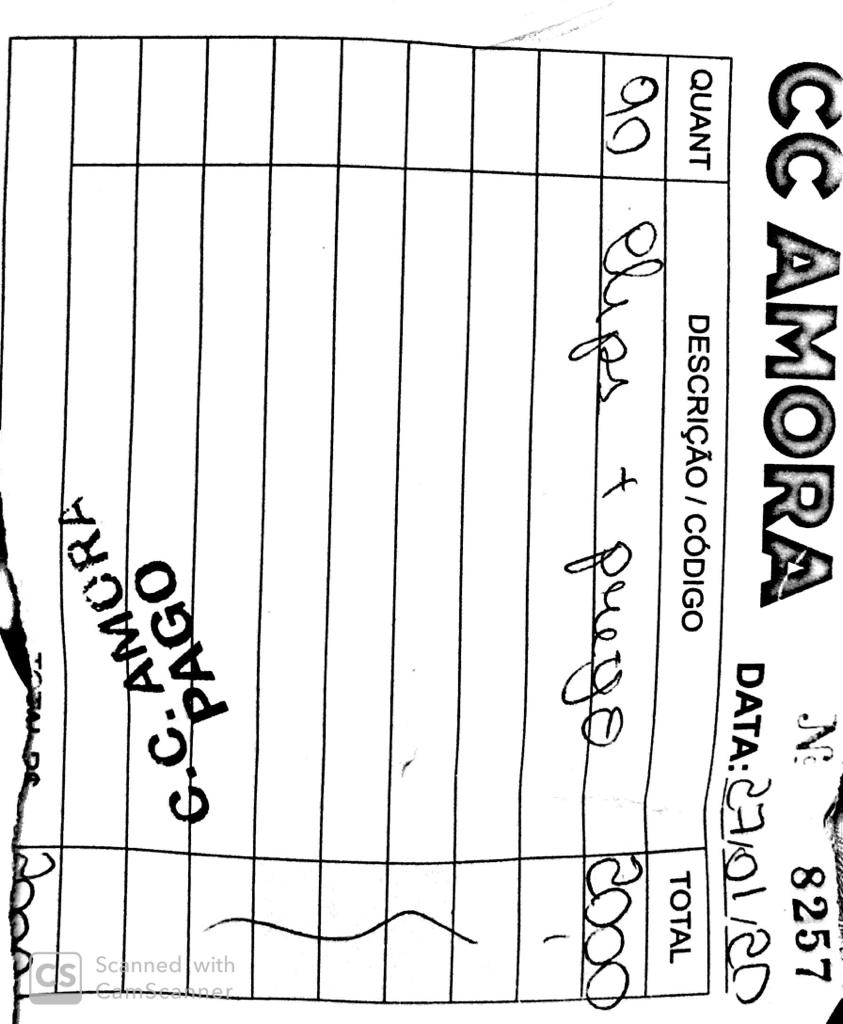 CC AMORA
Nº 8257
DATA: 27/01/20
QUANT DESCRIÇÃO / CÓDIGO TOTAL
90 + prego 2000
C.C. AMORA
PAGO
TOTAL R$ 2000
Scanned with
CamScanner